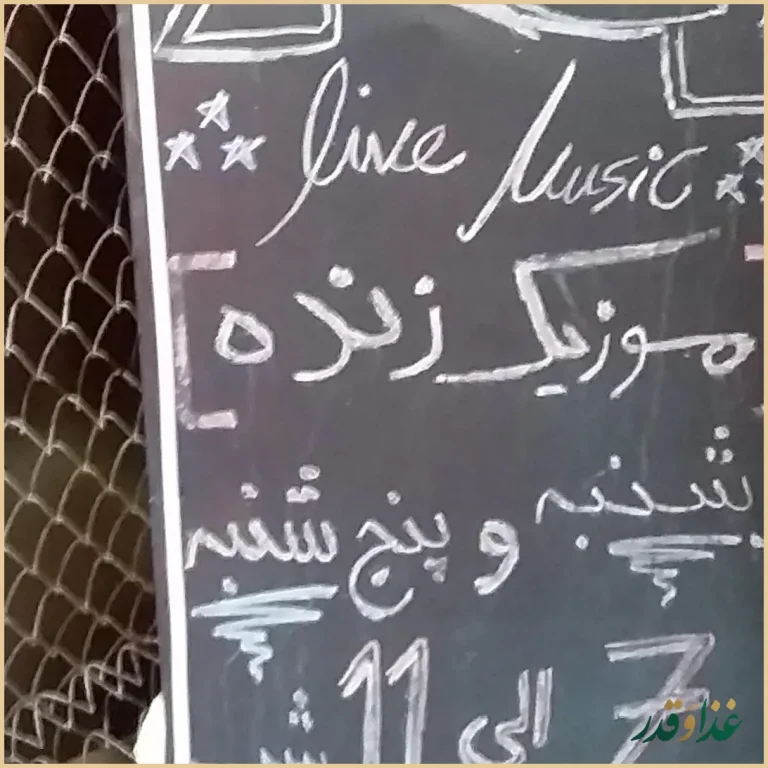 Live Music
موزیک زنده
شنبه و پنج شنبه
7 الی 11
غذا و قدر